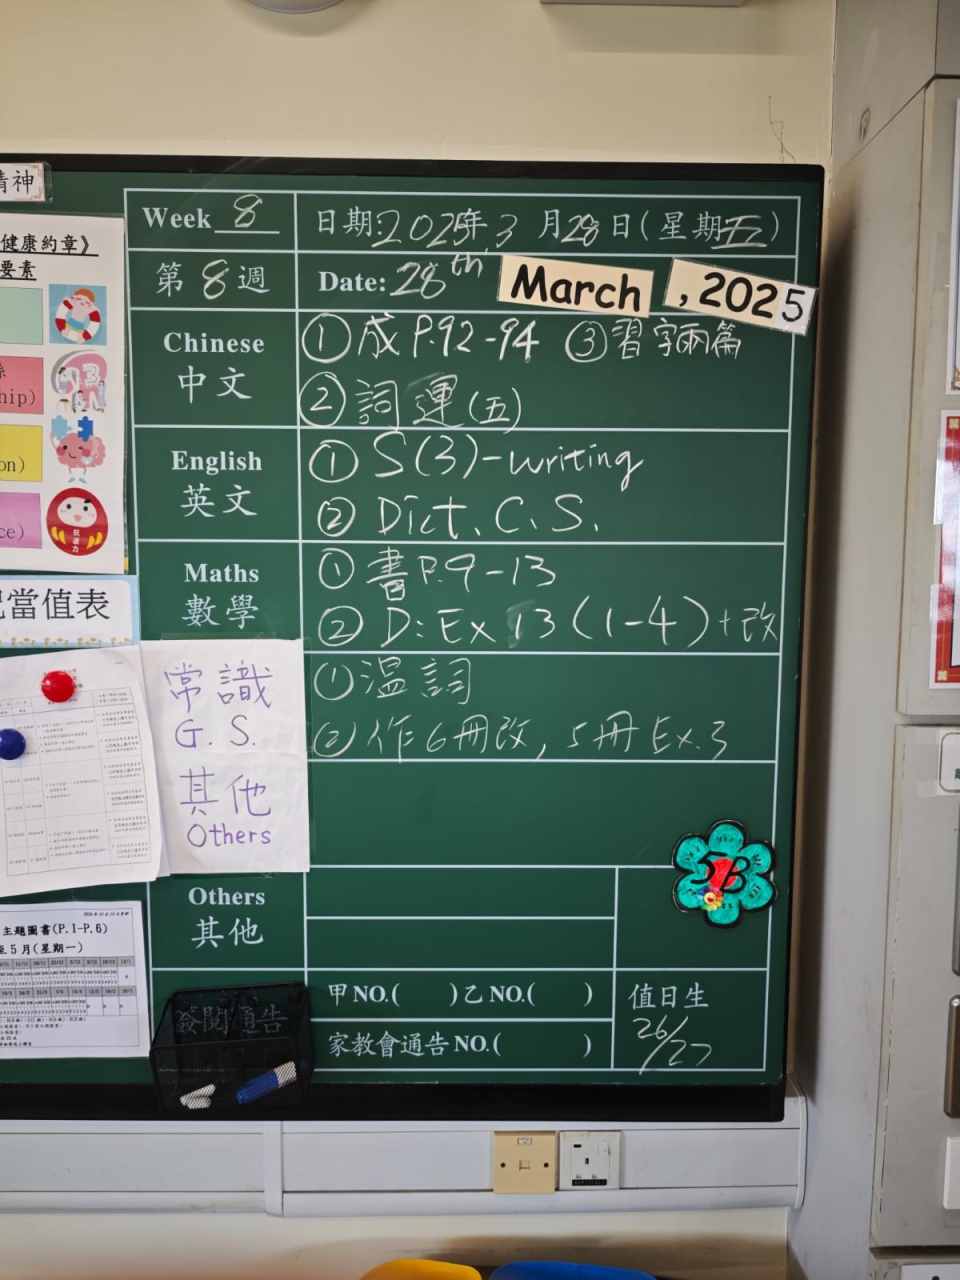 精神
健康約章》
要素
hip)
on)
抗逆力
ce)
當值表
主題圖書(P.1-P.6)
至5月(星期一)
Week 8
日期:2025年3月28日(星期五)
第8週
Date: 28th March, 2025
Chinese
中文
① 成 P.92-94 ③ 習字兩篇
② 詞運(五)
English
英文
① S(3)-writing
② Dict. C.S.
Maths
數學
① 書P.9-13
② D: Ex 13 (1-4)+改
常識
G.S.
① 溫詞
② 作6冊改, 5冊 Ex.3
其他
Others
5B
Others
其他
甲NO.( )乙NO.( )
值日生
26/27
發閱通告
家教會通告NO.( )